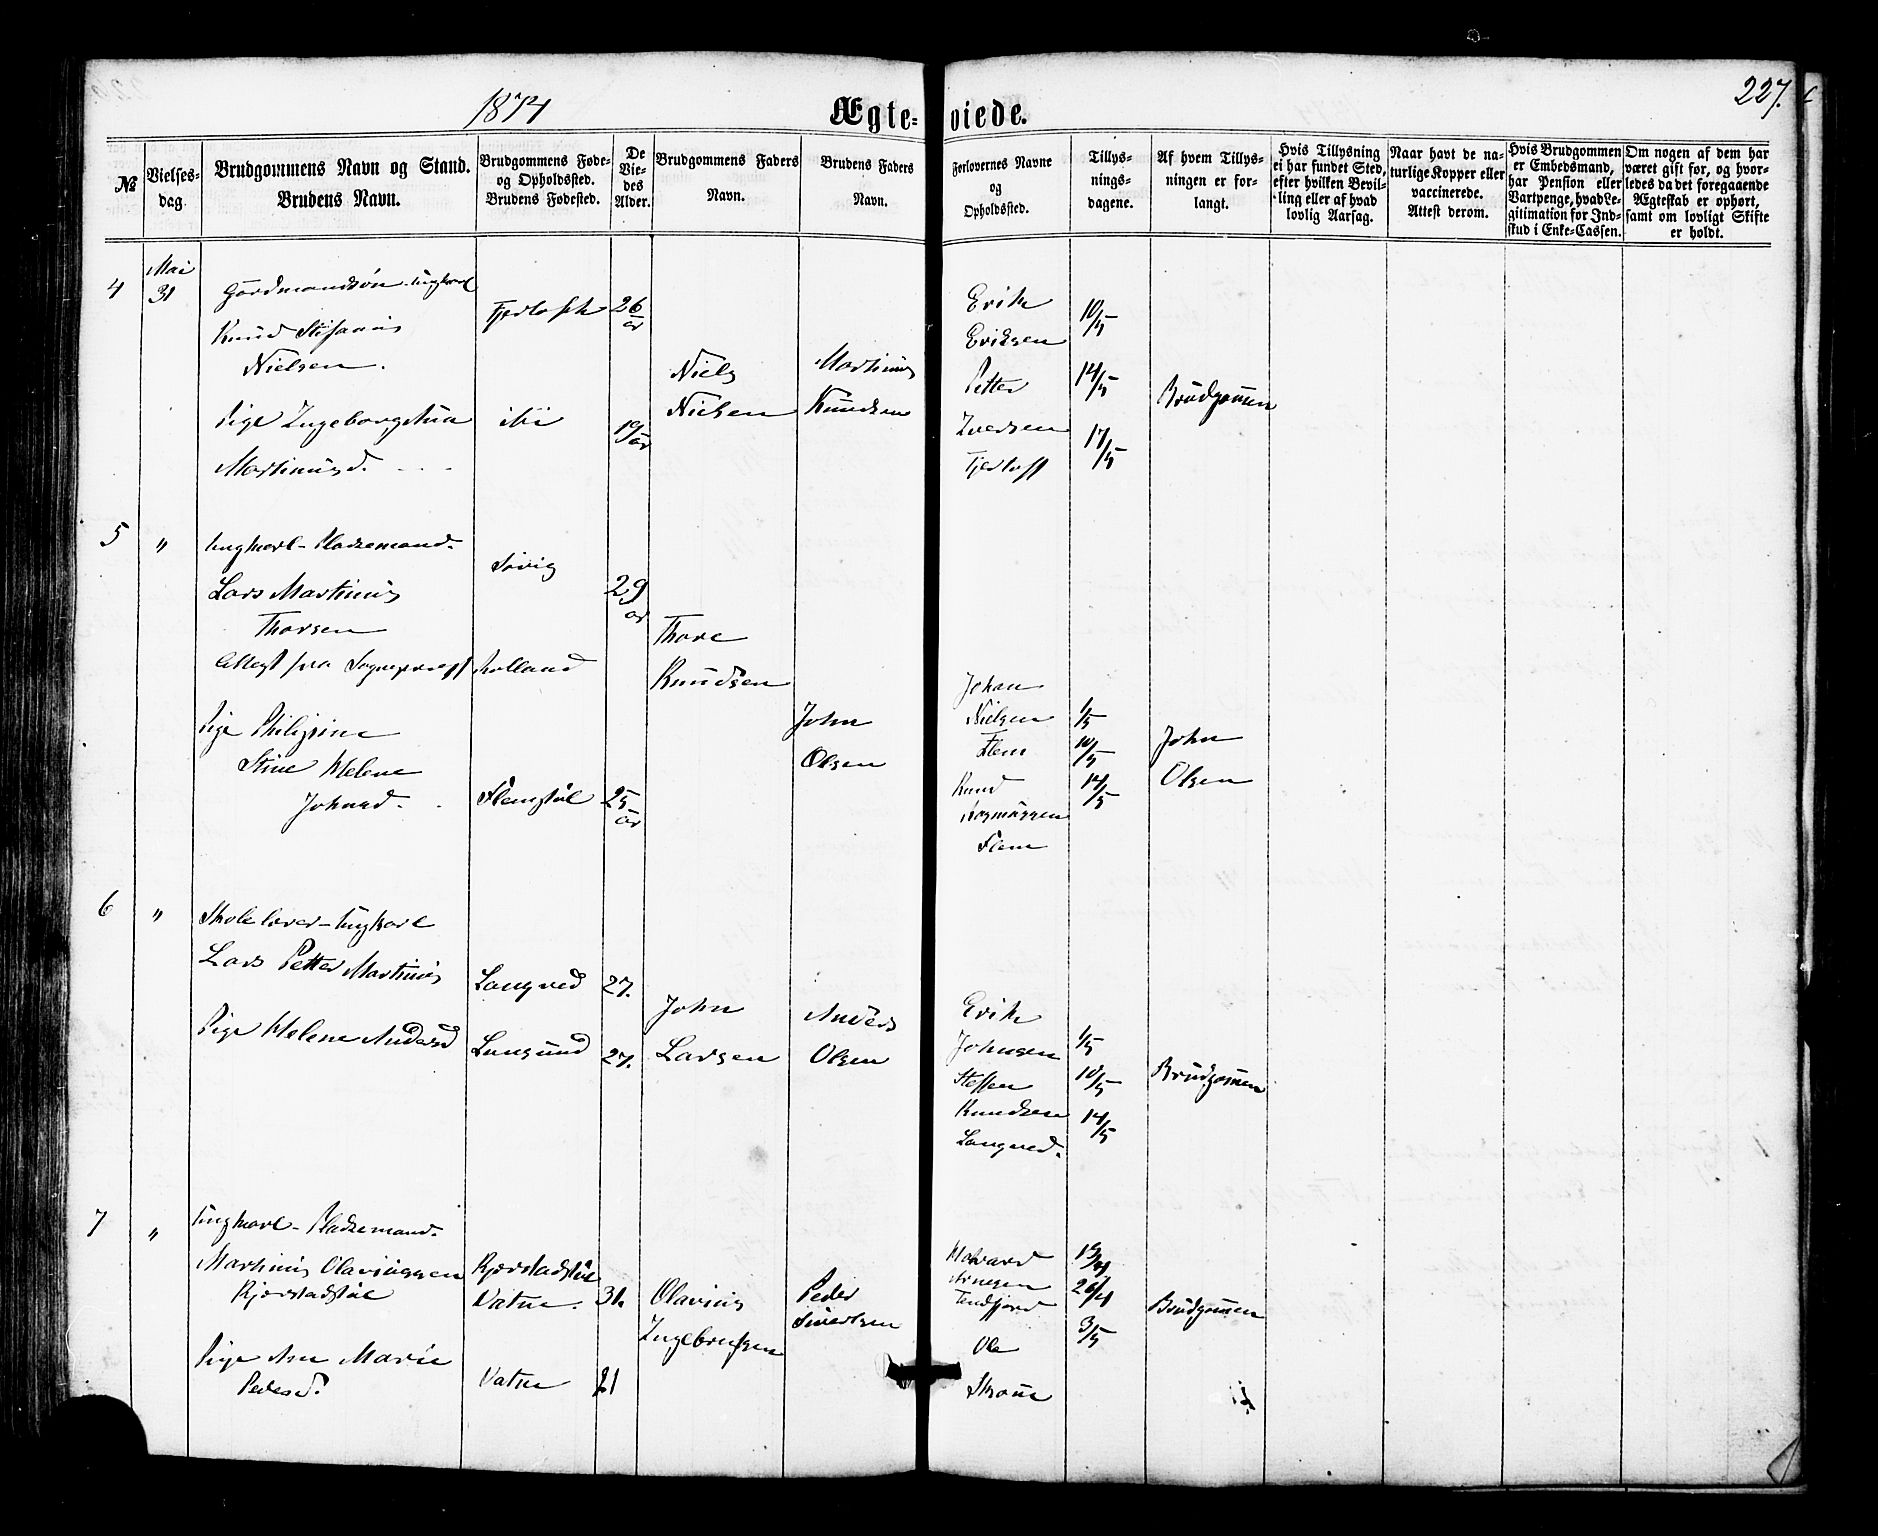 1874
Ægte-viede.
227.
№
Vielses-
dag.
Brudgommens Navn og Stand.
Brudens Navn.
Brudgommens Føde-
og Opholdssted.
Brudens Fødested.
De
Vie-
des
Alder.
Brudgommens Faders
Navn.
Brudens Faders
Navn.
Forlovernes Navne
og
Opholdssted.
Tillys-
nings-
dagene.
Af hvem Tillys-
ningen er for-
langt.
Hvis Tillysning
ei har fundet Sted,
efter hvilken Bevil-
ling eller af hvad
lovlig Aarsag.
Naar havt de na-
turlige Kopper eller
vaccinerede.
Attest derom.
Hvis Brudgommen
er Embedsmand,
har Pension eller
Vartpenge, hvad Le-
gitimation for Ind-
skud i Enke-Cassen.
Om nogen af dem har
været gift før, og hvor-
ledes da det foregaaende
Ægteskab er ophørt,
samt om lovligt Skifte
er holdt.
4
Mai
31
Gårdmandsøn-Ungkarl
Knud Stefanus
Nielsen.
Pige Ingeborg Anna
Martinusd.
Fjertoft
ibi
26
år
19
år
Niels
Nielsen
Martinus
Knudsen
Erik
Eriksen
Petter
Iversen
Fjertoft
10/5
14/5
17/5
Brudgommen
5
"
Ungkarl-Pladsemand.
Lars Martinus
Thorsen
Attest fra Sognepræst Holland
Pige Philipine
Stine Helene
Johnsd.
Søvig
Flemstøl
29
år
25
år
Thore
Knudsen
John
Olsen
Johan
Nielsen
Flem
Knud
Rasmussen
Flem
1/5
10/5
14/5
John
Olsen
6
"
Skolelærer-Ungkarl
Lars Petter Martinus
Pige Helene Andersd
Longved
Longsund
27.
27.
John
Larsen
Anders
Olsen
Erik
Johnsen
Steffen
Knudsen
Longved.
1/5
10/5
14/5
Brudgommen
7
"
Ungkarl-Pladsemand.
Martinus Olavinssen
Kjerstadstøl
Pige Ane Marie
Pedersd.
Kjerstadstøl
Vatne.
Vatne
31.
21
Olavius
Ingebrigtsen
Peder
Sivertsen
Havard
Arnesen
Tenfjord
Ole
Skoue
19/4
26/4
3/5
Brudgommen